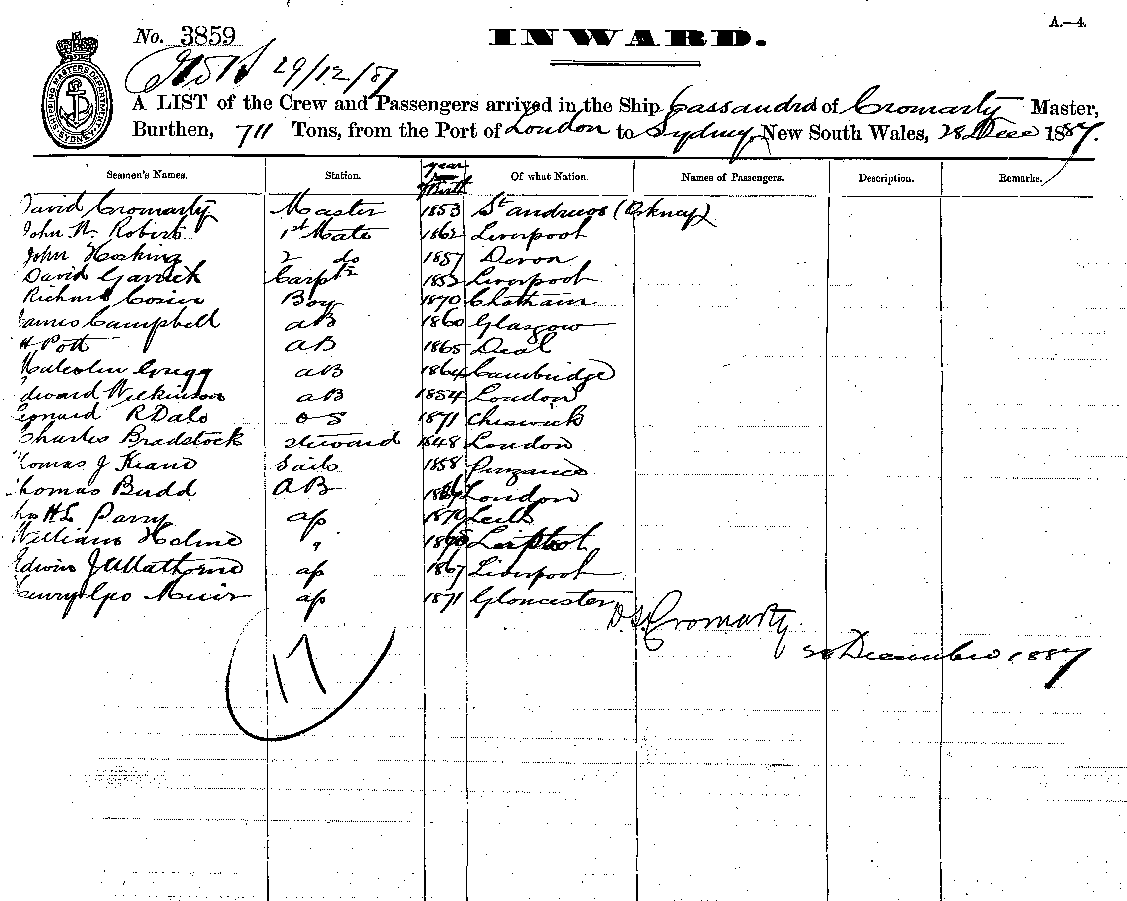 A.—4.
No. 3859 INWARD.
29/12/87
A LIST of the Crew and Passengers arrived in the Ship Cassandra of Cromarty Master,
Burthen, 711 Tons, from the Port of London to Sydney, New South Wales, 28 Dece 1887.
Seamen's Names. Station. year of Birth Of what Nation. Names of Passengers. Description. Remarks.
David Cromarty Master 1853 St Andrews (Orkney)
John W. Roberts 1st Mate 1862 Liverpool
John Hosking 2 do 1857 Devon
David Garrick Carptr 1852 Liverpool
Richard Cosier Boy 1870 Chatham
James Campbell AB 1860 Glasgow
H Pott AB 1865 Deal
Malcolm Gregg AB 1864 Cambridge
Edward Wilkinson AB 1854 London
Leonard R Dale OS 1871 Cheswick
Charles Bradstock Steward 1848 London
Thomas J Keano Sails 1858 Penzance
Thomas Budd AB London
H L Parry ap 1870 Leith
William Holme "
Edwin ap 1867 Liverpool
Henry Geo Muir ap 1871 Gloucester
D. S. Cromarty
28 December 1887
17